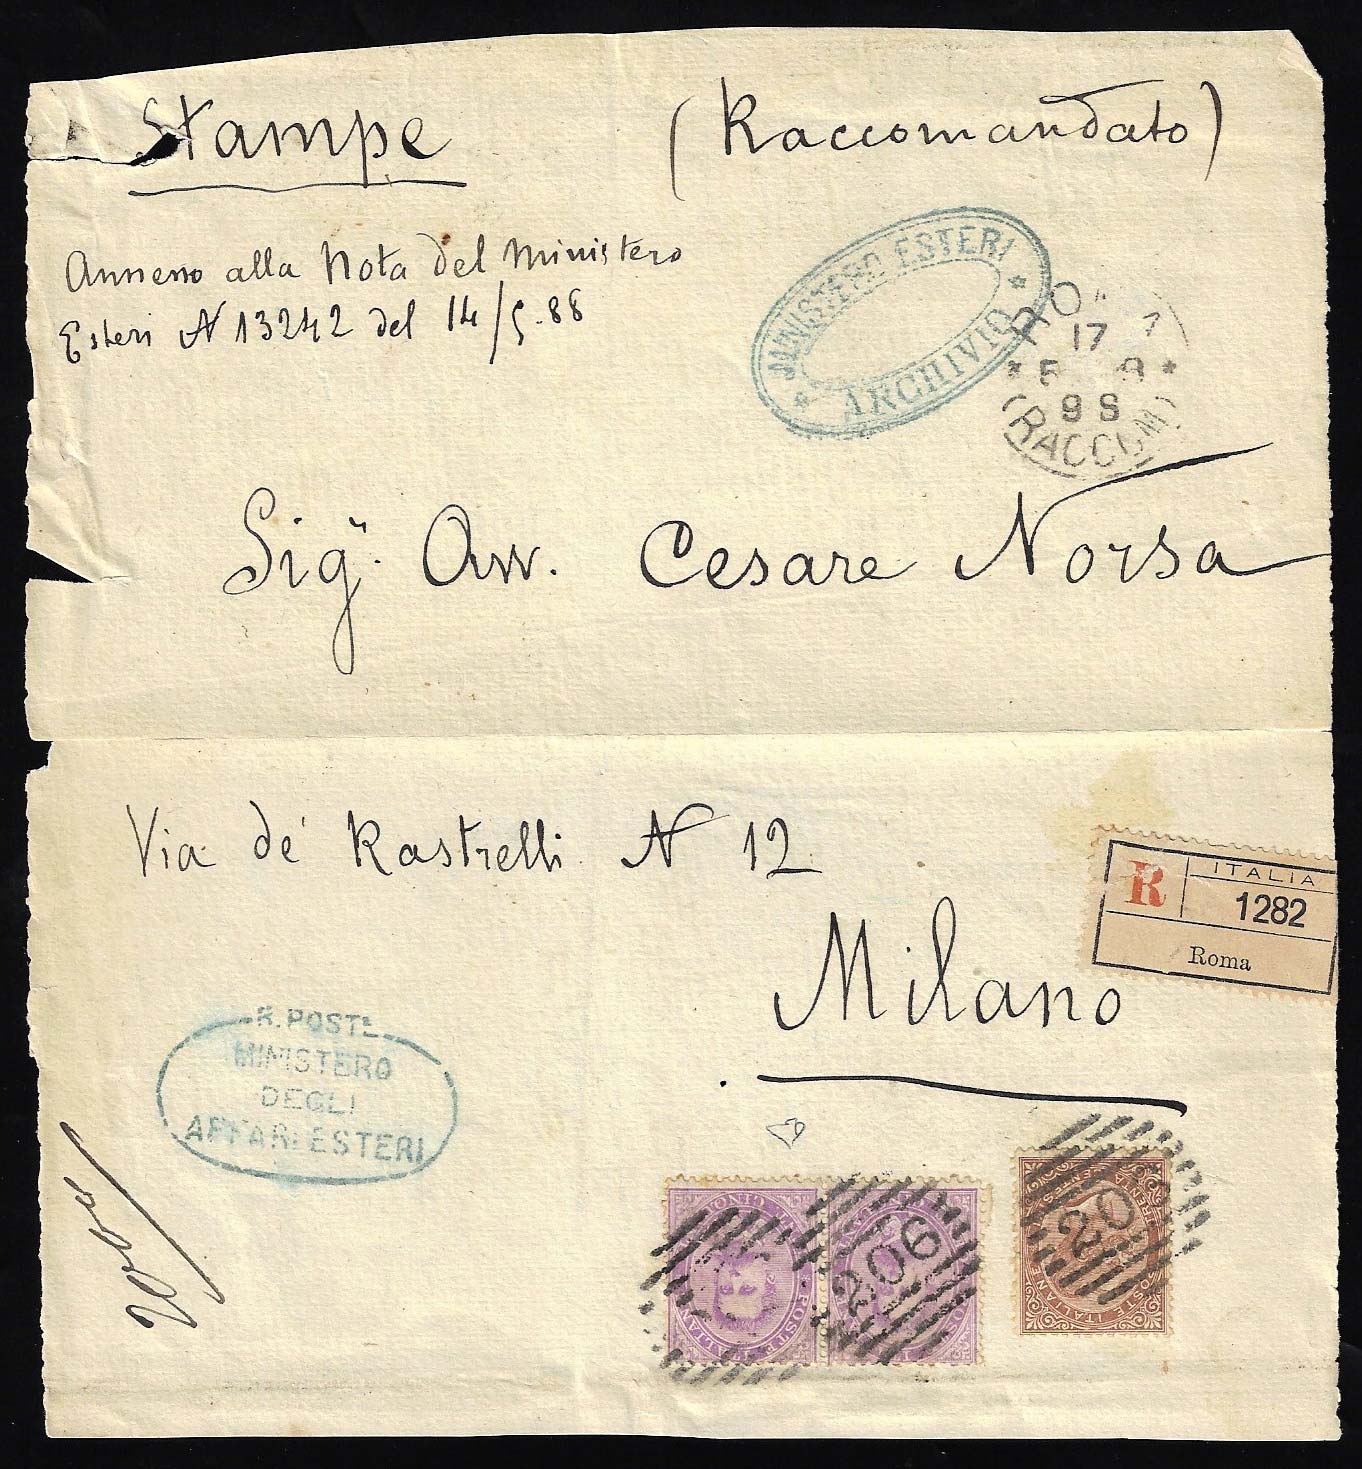 Stampe (Raccomandato)
Annesso alla Nota del Ministero
Esteri N 13242 del 14/5-88
MINISTERO ESTERI
ARCHIVIO
17
(RACCOM)
Sigr. Avv. Cesare Norsa
Via de' Rastrelli N 12
R ITALIA
1282
Roma
Milano
R. POSTE
MINISTERO
DEGLI
AFFARI ESTERI
206
20
POSTE ITALIANE